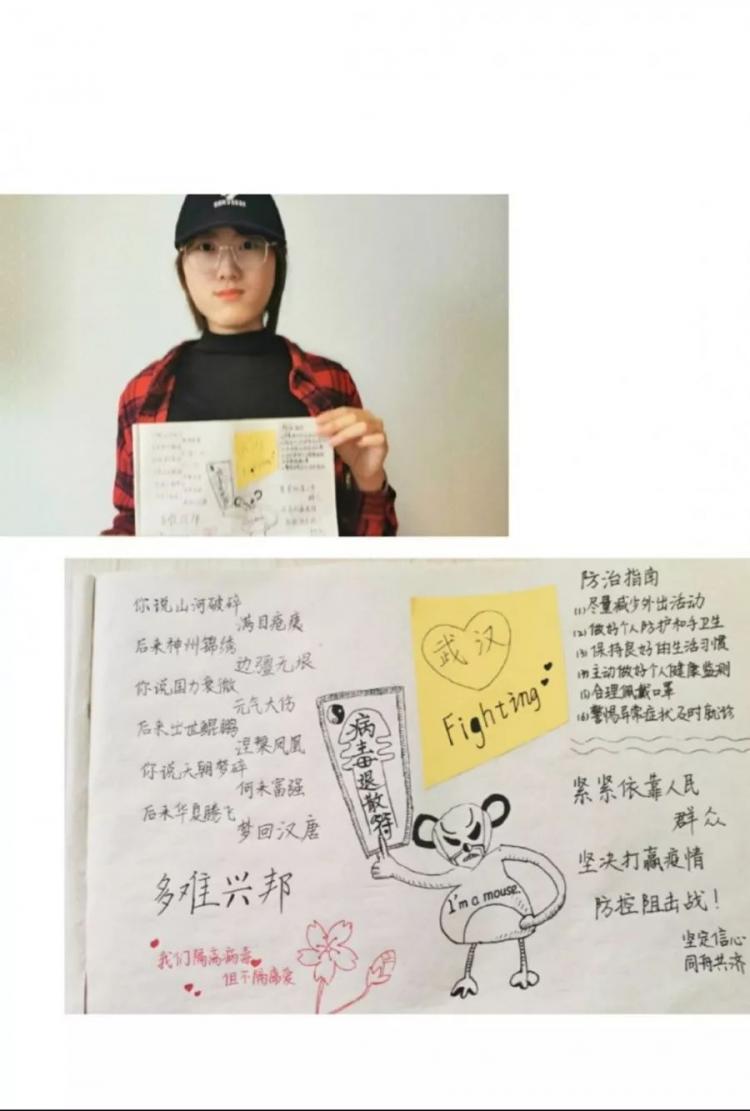 你说山河破碎
满目疮痍
后来神州锦绣
边疆无垠
你说国力衰微
元气大伤
后来出世鲲鹏
涅槃凤凰
你说天朝梦碎
何来富强
后来华夏腾飞
梦回汉唐
多难兴邦
我们隔离病毒
但不隔离爱
病毒退散符
武汉
Fighting
I'm a mouse.
防治指南
(1)尽量减少外出活动
(2)做好个人防护和手卫生
(3)保持良好的生活习惯
(4)主动做好个人健康监测
(5)合理佩戴口罩
(6)警惕异常症状及时就诊
紧紧依靠人民
群众
坚决打赢疫情
防控阻击战!
坚定信心
同舟共济